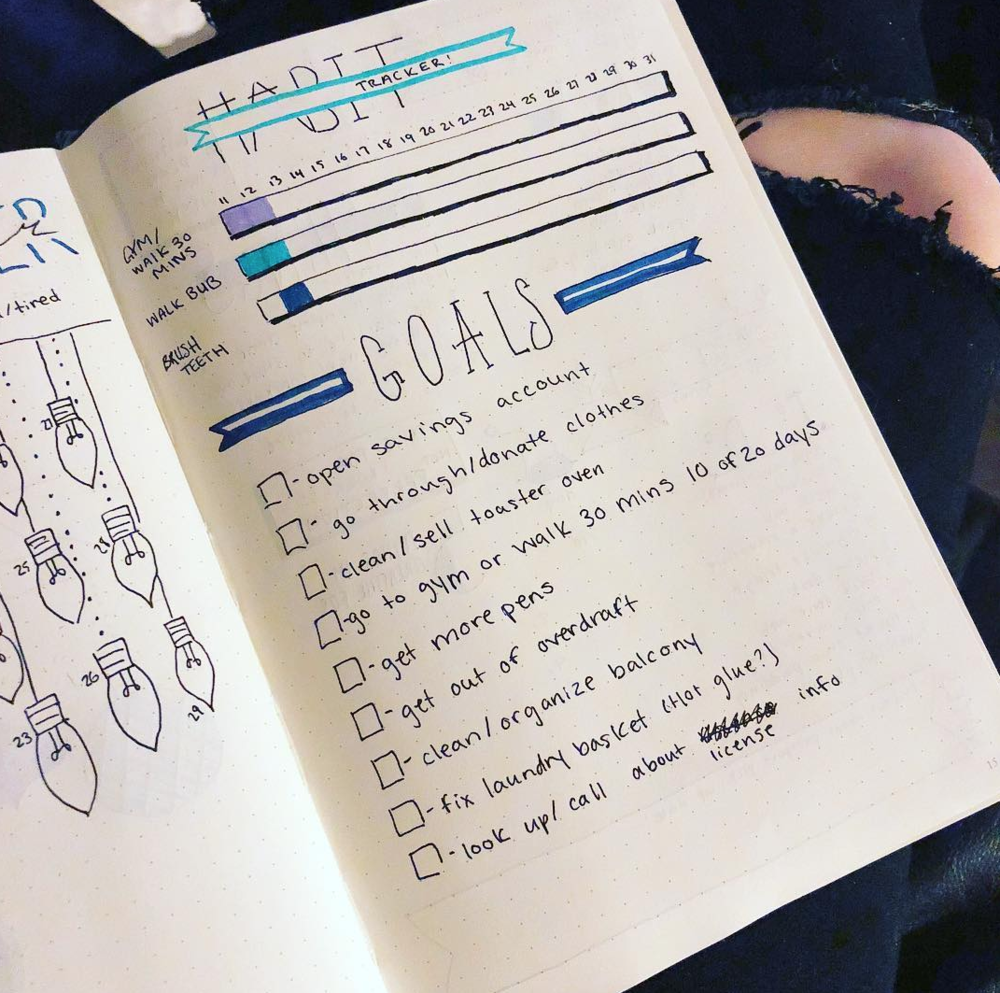 HABIT
TRACKER!
11 12 13 14 15 16 17 18 19 20 21 22 23 24 25 26 27 28 29 30 31
GYM/
WALK 30
MINS
WALK BUB
BRUSH
TEETH
GOALS
- open savings account
- go through/donate clothes
- clean/sell toaster oven
- go to gym or walk 30 mins 10 of 20 days
- get more pens
- get out of overdraft
- clean/organize balcony
- fix laundry basket (Hot glue?)
- look up/call about info
license
/tired
27
25
28
26
23
29
15